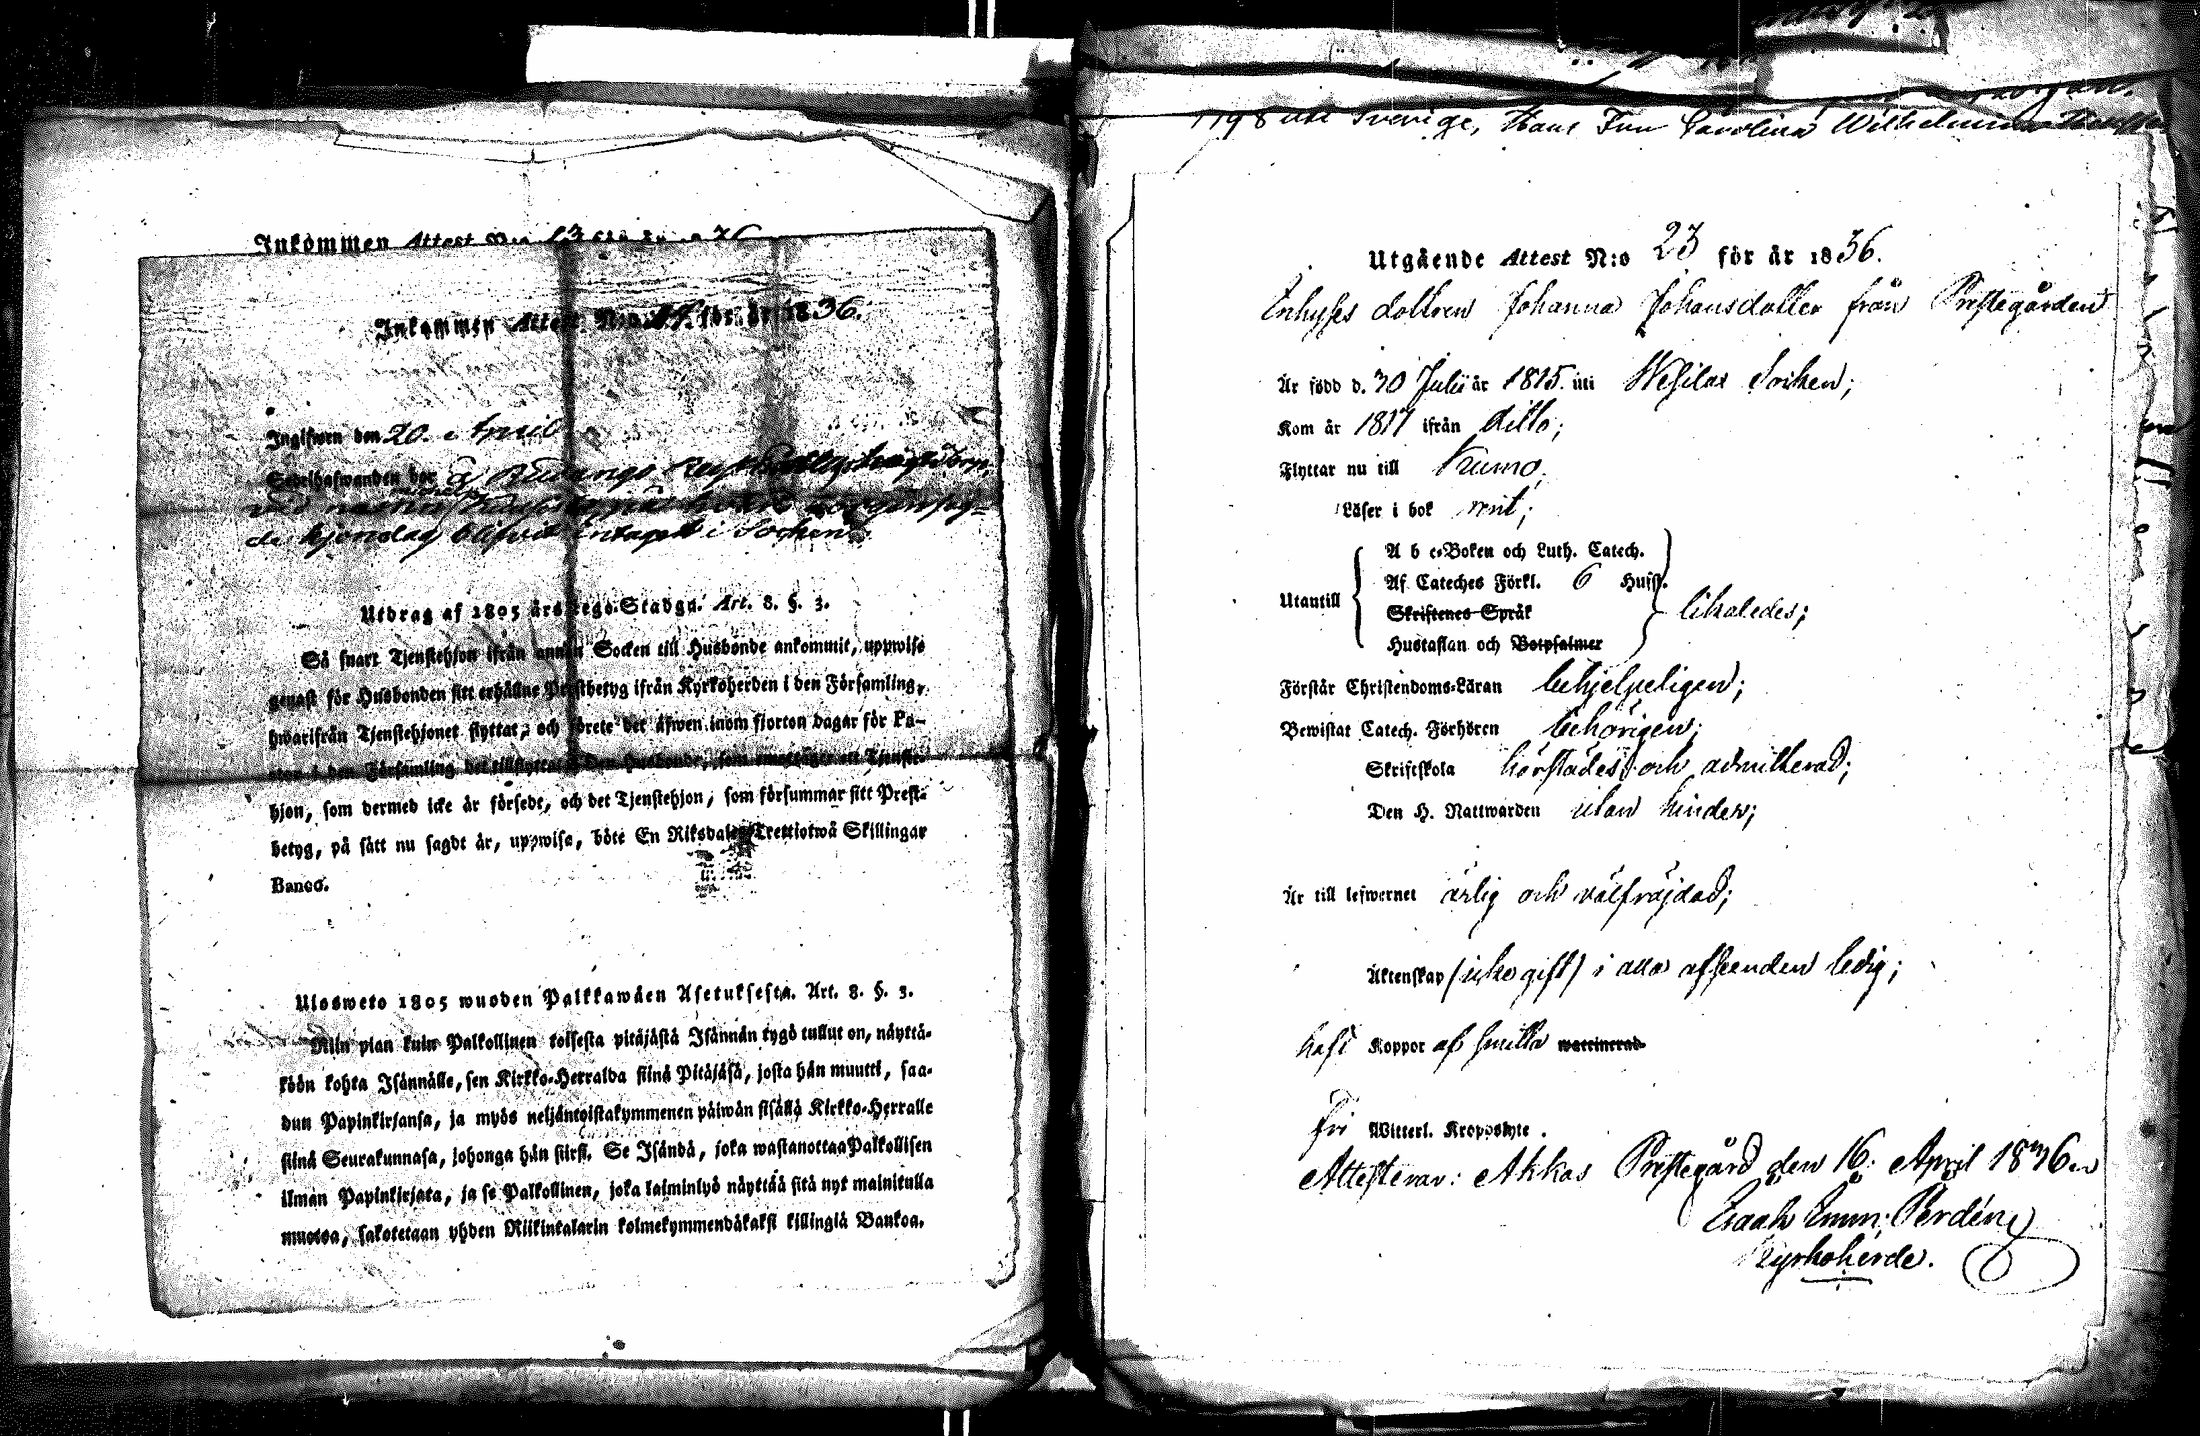 Inkommen Attest N:o för år 36
Inkommen Attest N:o för år 1836.
Ingifwen den 20. April
Sedelhafwanden bor
de kjöndag blifvit intagen i Socknen
Utdrag af 1805 års Lego-Stadga. Art. 8. §. 3.
Så snart Tjenstehjon ifrån annan Socken till Husbonde ankommit, uppwise
genast för Husbonden sitt erhållne Prestbetyg ifrån Kyrkoherden i den Församling,
hwarifrån Tjenstehjonet flyttat, och förete det äfwen inom fjorton dagar för Pa-
storn i den Församling det tillflyttat. Den Husbonde, som emottager ett Tjenste-
hjon, som dermed icke är försedt, och det Tjenstehjon, som försummar sitt Prest-
betyg, på sätt nu sagdt är, uppwisa, böte En Riksdaler Trettiotwå Skillingar
Banco.
Ulosweto 1805 wuoden Palkkawäen Asetuksesta. Art. 8. §. 3.
Niin pian kuin Palkollinen toisesta pitäjästä Isännän tygö tullut on, näyttä-
köön kohta Isännälle, sen Kirkko-Herralda siinä Pitäjäsä, josta hän muutti, saa-
dun Papinkirjansa, ja myös neljäntoistakymmenen päiwän sisällä Kirkko-Herralle
siinä Seurakunnasa, johonga hän siirsi. Se Isändä, joka wastanottaa Palkollisen
ilman Papinkirjata, ja se Palkollinen, joka laiminlyö näyttää sitä nyt mainitulla
muotoa, sakotetaan yhden Riikintalarin kolmekymmendäkaksi killingiä Bankoa.
1798 uti Sverige, Hans Fru Carolina Wilhelmina
Utgående Attest N:o 23 för år 1836.
Enhyses dottren Johanna Johansdotter från Prestegården
Är född d. 30 Julii år 1815. uti Wesilax Socken;
Kom år 1817 ifrån ditto;
Flyttar nu till Kumo;
Läser i bok rent;
A b c-Boken och Luth. Catech.
Af Cateches Förkl. 6 Hufst.
Utantill Skriftenes Språk likaledes;
Hustaflan och Botpsalmer
Förstår Christendoms-Läran behjelpeligen;
Bewistat Catech. Förhören behörigen;
Skriftskola härstädes och admitterad;
Den H. Nattwarden utan hinder;
Är till lefwernet ärlig och välfräjdad;
Äktenskap (icke gift) i alla afseenden ledig;
haft Koppor af Smitta waccinerad
Fri Witterl. Kroppslyte.
Attesterar: Akkas Prestegård den 16. April 1836
Isaak Emn: Perdén
Kyrkoherde.